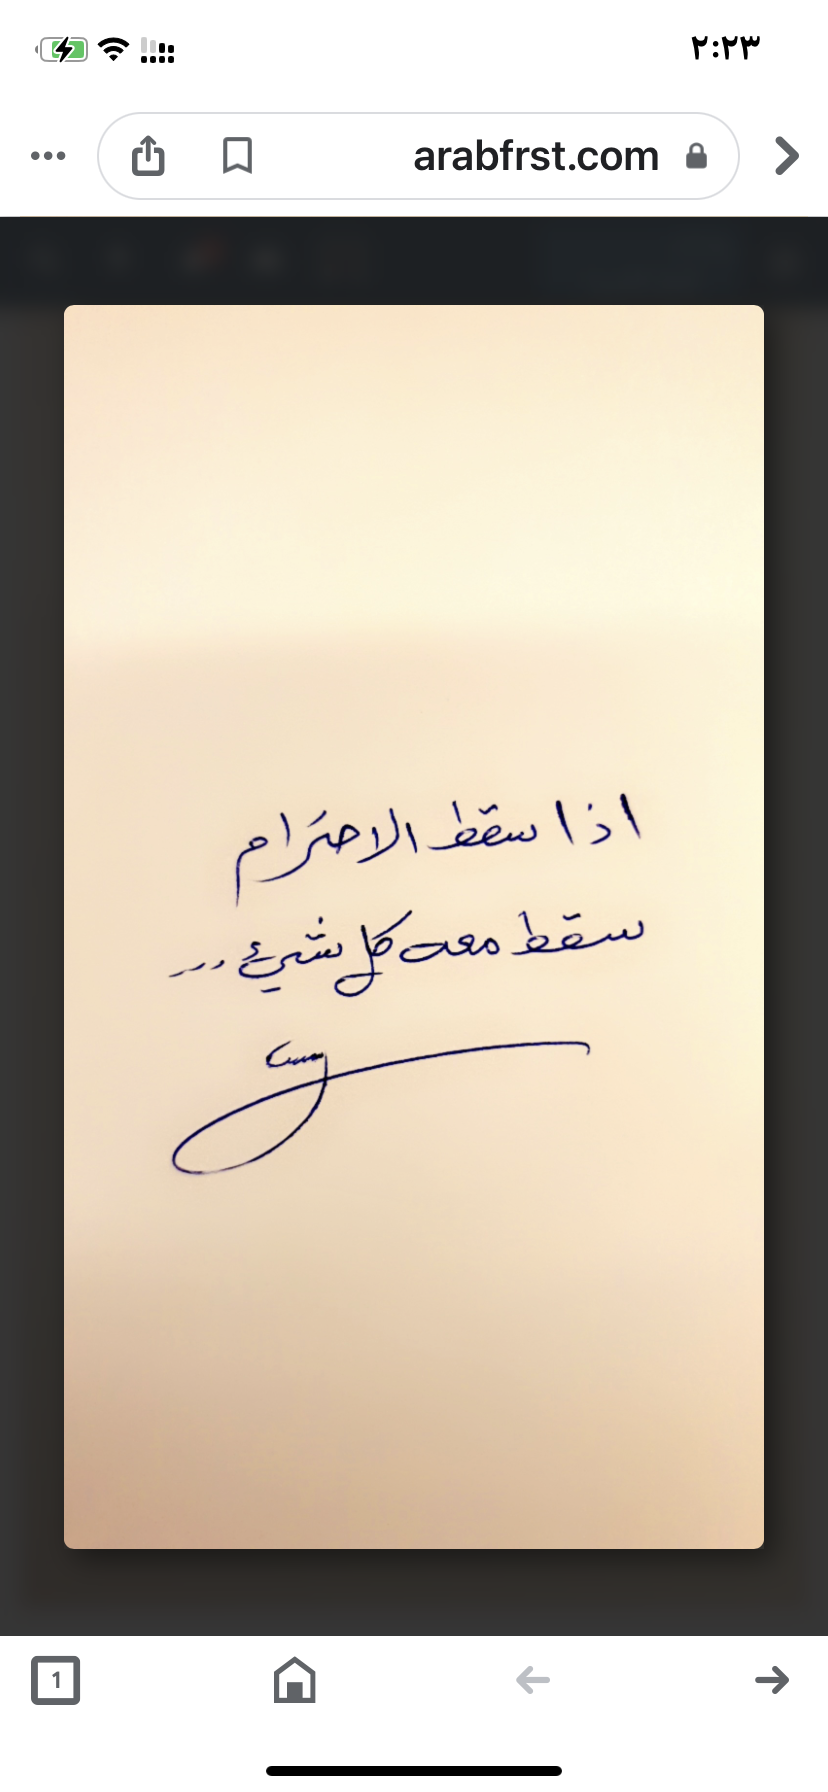 ٢:٢٣
arabfrst.com
اذا سقط الاحترام
سقط معه كل شيئ ...
1